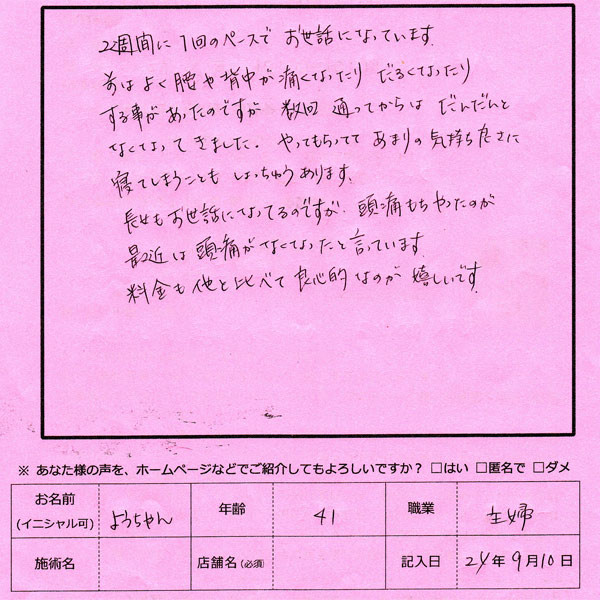 2週間に1回のペースでお世話になっています。
前はよく腰や背中が痛くなったり だるくなったり
する事があったのですが 数回 通ってからは だんだんと
なくなってきました。やってもらってて あまりの気持ち良さに
寝てしまうことも しょっちゅうあります。
長女もお世話になってるのですが、頭痛もちやったのが
最近は頭痛がなくなったと言っています。
料金も他と比べて良心的なのが 嬉しいです。
※ あなた様の声を、ホームページなどでご紹介してもよろしいですか？ □はい □匿名で □ダメ
お名前(イニシャル可) ようちゃん 年齢 41 職業 主婦
施術名 店舗名(必須) 記入日 24年9月10日